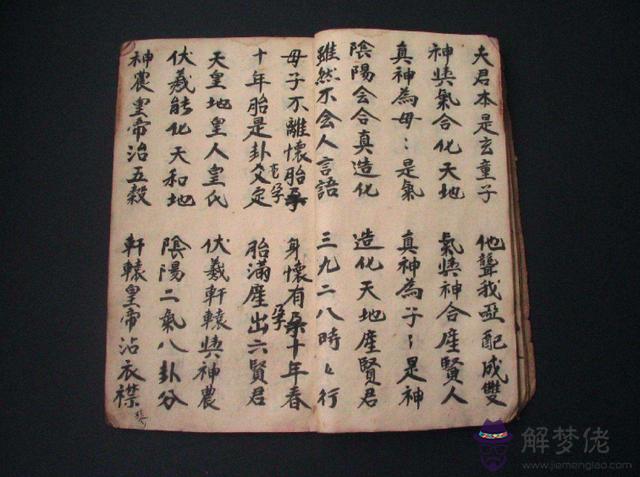 夫君本是玄童子　他聾我啞配成雙
神與氣合化天地　氣與神合産賢人
真神為母〻是氣　真神為子〻是神
陰陽会合真造化　造化天地産賢君
雖然不会人言語　三九二八時〻行
母子不離懷胎孕　身懷有孕十年春
孕　孕
十年胎是卦爻定　胎滿産出六賢君
天皇地皇人皇氏　伏羲軒轅與神農
伏羲能化天和地　陰陽二氣八卦分
神農皇帝治五穀　軒轅皇帝沾衣襟
解梦佬
www.jiemenglao.com